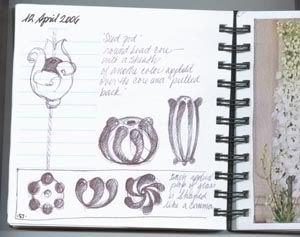 12. April 2006
"Seed pod"
round bead core –
with a sheath
of another color applied
over the core and "pulled
back"
Each applied
of glass
is shaped
like a comma